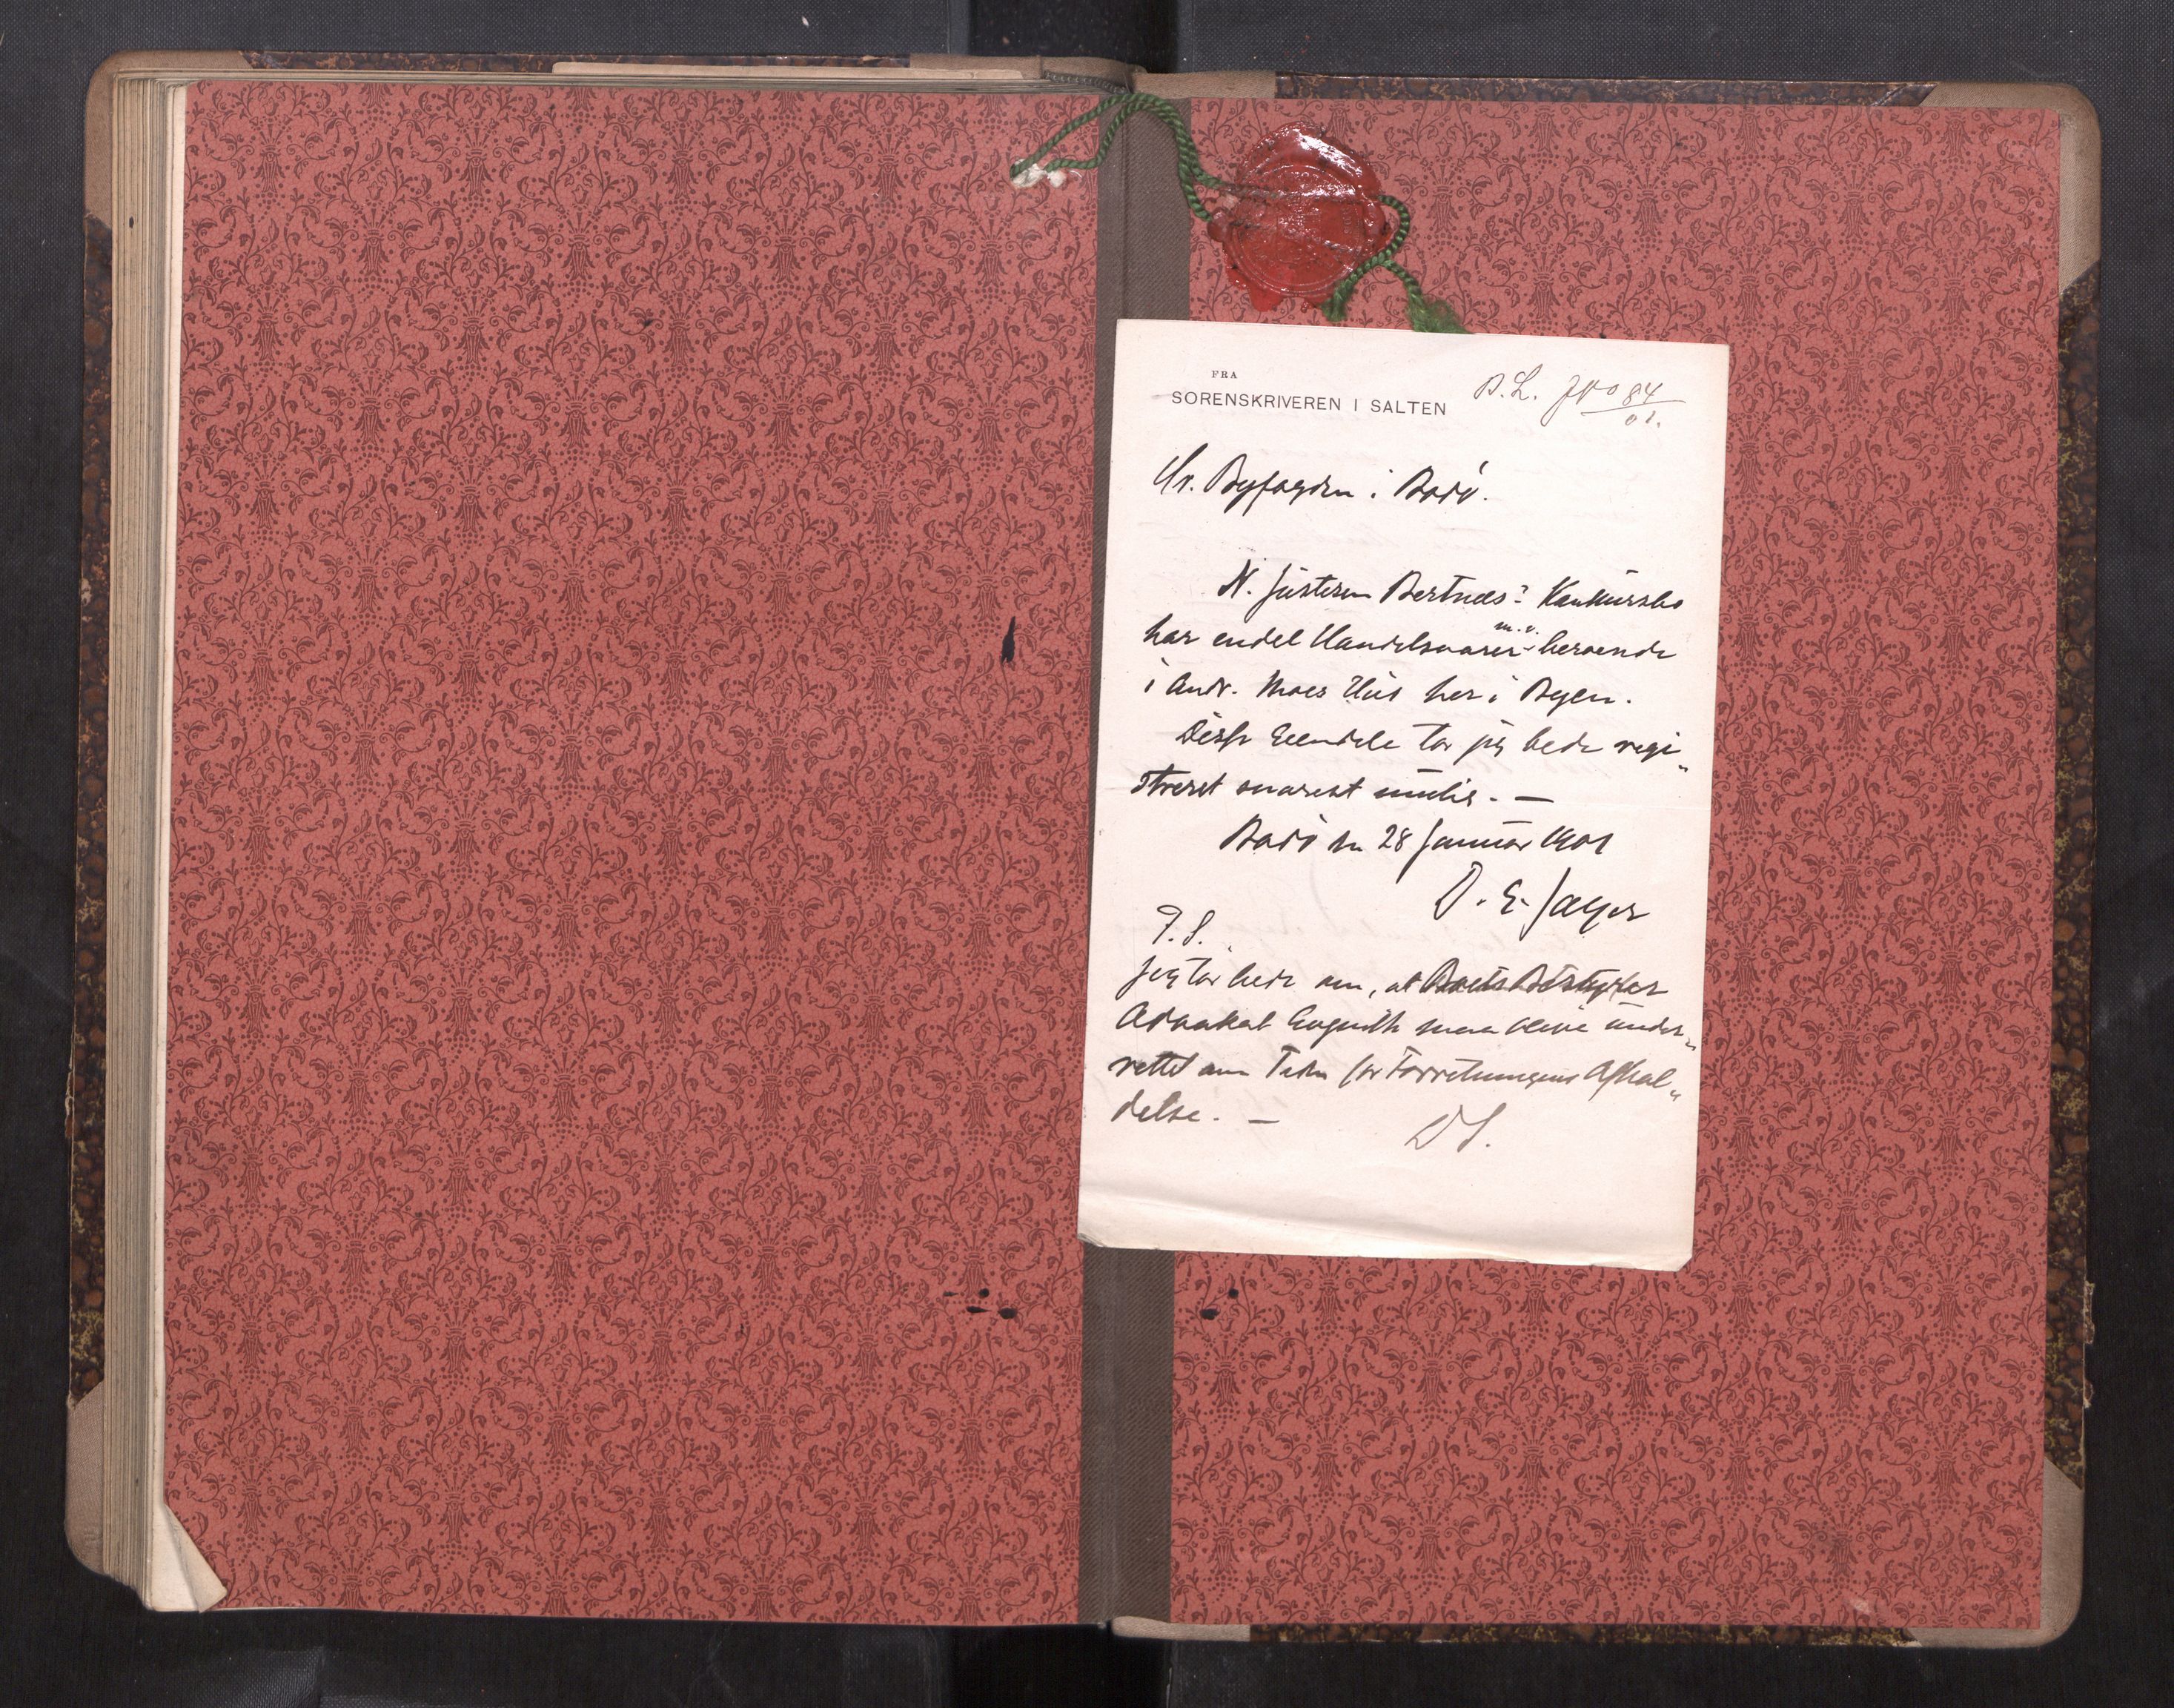 FRA
SORENSKRIVEREN I SALTEN
B. L. JNo 84/01.
Hr. Byfogden i Bodö.
N. Justesen Bertnes' Konkursbo
har endel Handelsvarer m.v. beroende
i Andr. Moes Hus her i Byen.
Disse Eiendele tör jeg bede regi„
streret snarest mulig. —
Bodö den 28 Januar 1901
D. E.
P. S.
Jeg tör bede om, at Boets Bestyrer
Advokat maa blive under„
rettet om Tiden for Forretningens Afhol„
delse. —
D S.